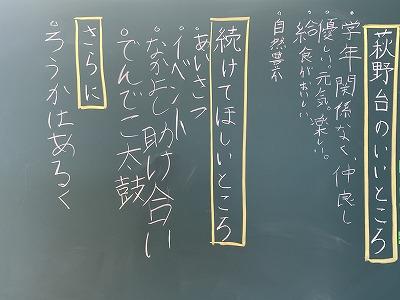 萩野台のいいところ
・学年関係なく、仲良し
・優しい。元気。楽しい。
・給食がおいしい
・自然豊か
続けてほしいところ
・あいさつ
・イベント
・なかよし助け合い
・でんでこ太鼓
さらに
・ろうかはあるく